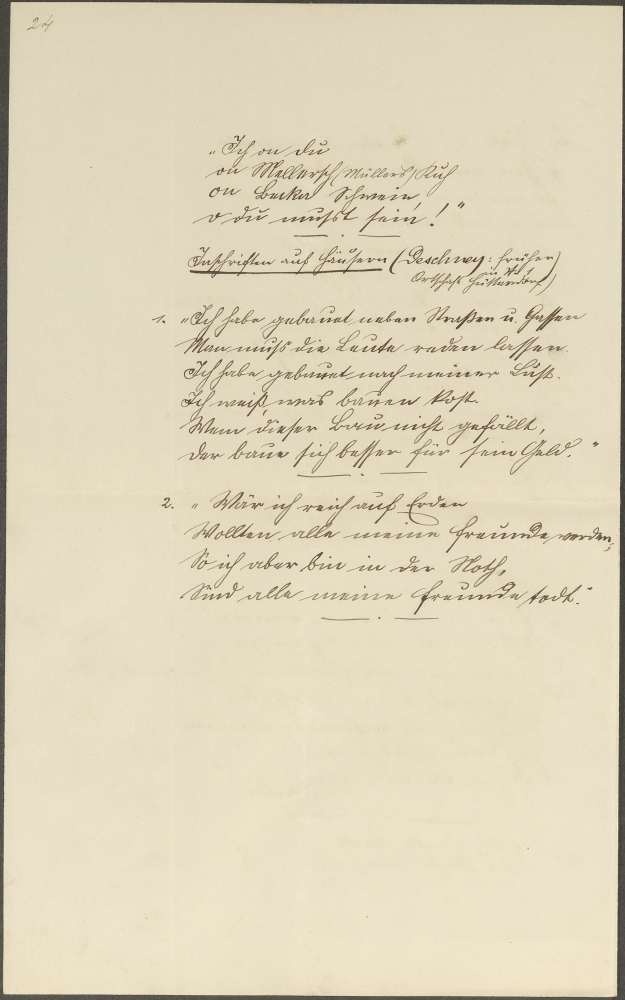 24
„Ich on du
on Mellersch (Müllers) Kuh
on Becka Schwein,
o du mußt sein!“
Inschriften auf Häusern (Deschney: früher
in
Ortschaft Hüttendorf)
1. „Ich habe gebauet neben Straßen u. Gassen
Man muß die Leute reden lassen.
Ich habe gebauet nach meiner Lust.
Ich weiß, was bauen kost.
Wem dieser Bau nicht gefällt,
Der baue sich besser für sein Geld.“
2. „Wär ich reich auf Erden
Wollten alle meine Freunde werden;
So ich aber bin in der Noth,
Sind alle meine Freunde todt.“